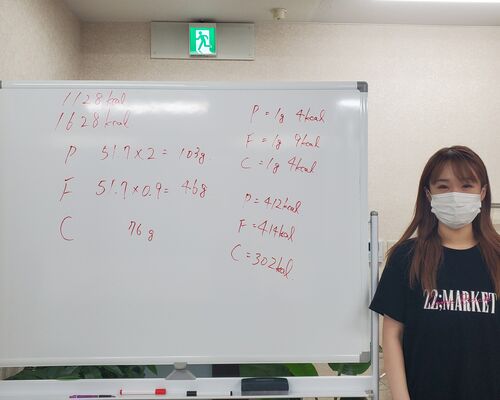 1128kcal
1628kcal
P 51.7×2= 103g.
F 51.7×0.9= 46g
C 76g
P=1g 4kcal
F=1g 9kcal
C=1g 4kcal
P=412kcal
F=414kcal
C=302kcal
22;MARKET